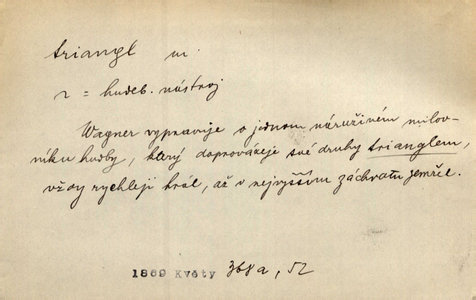 triangl m.
r = hudeb. nástroj
Wagner vypravuje o jednom náruživém milov-
níku hudby, který doprovázeje své druhy trianglem,
vždy rychleji hrál, až v nejvyšším záchvatu zemřel.
1869 Květy 368a, 52